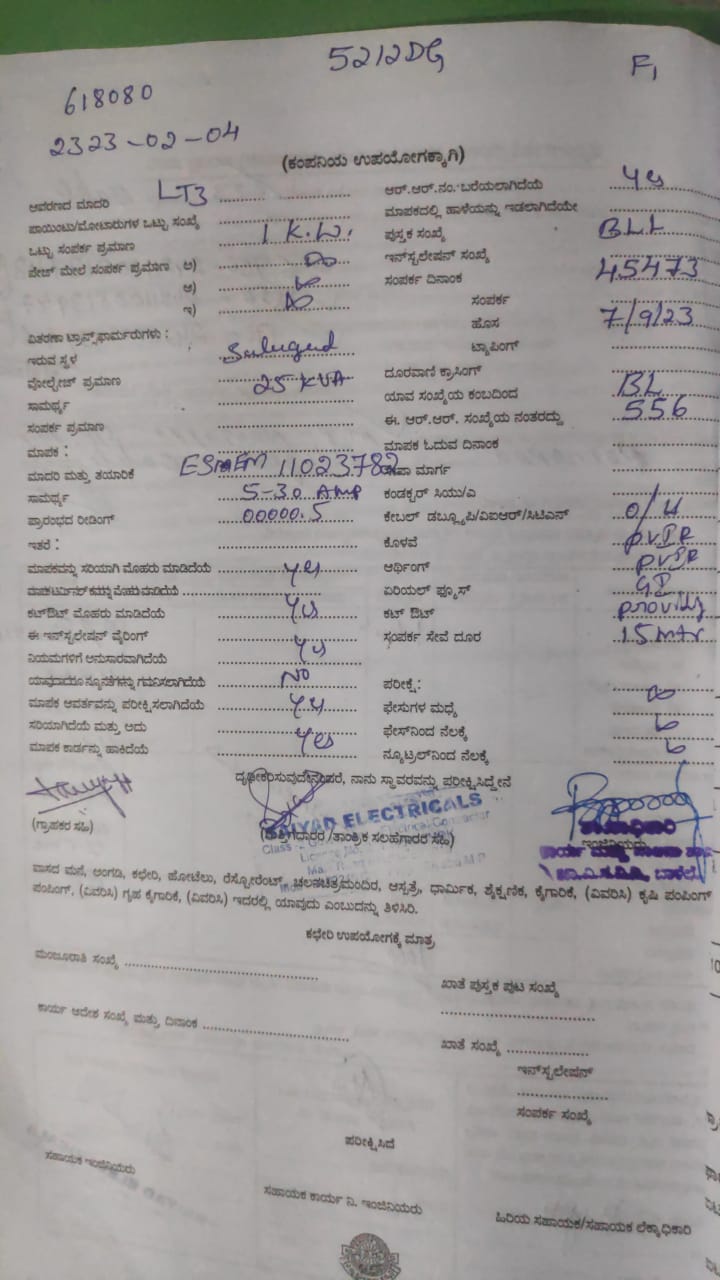 5212DG
F1
618080
2323-02-04
(ಕಂಪನಿಯ ಉಪಯೋಗಕ್ಕಾಗಿ)
ಆವರಣದ ಮಾದರಿ LT3
ಪಾಯಿಂಟು/ಮೋಟಾರುಗಳ ಒಟ್ಟು ಸಂಖ್ಯೆ
ಒಟ್ಟು ಸಂಪರ್ಕ ಪ್ರಮಾಣ 1 K.W.
ಪೇಜ್ ಮೇಲೆ ಸಂಪರ್ಕ ಪ್ರಮಾಣ ಅ)
ಆ)
ಇ)
ವಿತರಣಾ ಟ್ರಾನ್ಸ್‌ಫಾರ್ಮರುಗಳು :
ಇರುವ ಸ್ಥಳ
ವೋಲ್ಟೇಜ್ ಪ್ರಮಾಣ 25 KVA
ಸಾಮರ್ಥ್ಯ
ಸಂಪರ್ಕ ಪ್ರಮಾಣ
ಮಾಪಕ :
ಮಾದರಿ ಮತ್ತು ತಯಾರಿಕೆ 11023782
ಸಾಮರ್ಥ್ಯ 5-30 AMP
ಪ್ರಾರಂಭದ ರೀಡಿಂಗ್ 00000.5
ಇತರೆ :
ಮಾಪಕವನ್ನು ಸರಿಯಾಗಿ ಮೊಹರು ಮಾಡಿದೆಯೆ yes
ಕಟ್‌ಔಟ್ ಮೊಹರು ಮಾಡಿದೆಯೆ yes
ಈ ಇನ್‌ಸ್ಟಲೇಷನ್ ವೈರಿಂಗ್
ನಿಯಮಗಳಿಗೆ ಅನುಸಾರವಾಗಿದೆಯೆ yes
ಯಾವುದಾದರೂ ನ್ಯೂನತೆಗಳನ್ನು ಗಮನಿಸಲಾಗಿದೆಯೆ NO
ಮಾಪಕ ಆವರ್ತವನ್ನು ಪರೀಕ್ಷಿಸಲಾಗಿದೆಯೆ yes
ಸರಿಯಾಗಿದೆಯೆ ಮತ್ತು ಅದು
ಮಾಪಕ ಕಾರ್ಡನ್ನು ಹಾಕಿದೆಯೆ yes
ಆರ್.ಆರ್.ನಂ. ಬರೆಯಲಾಗಿದೆಯೆ yes
ಮಾಪಕದಲ್ಲಿ ಹಾಳೆಯನ್ನು ಇಡಲಾಗಿದೆಯೇ
ಪುಸ್ತಕ ಸಂಖ್ಯೆ BLL
ಇನ್‌ಸ್ಟಲೇಷನ್ ಸಂಖ್ಯೆ 45473
ಸಂಪರ್ಕ ದಿನಾಂಕ
ಸಂಪರ್ಕ 7/9/23
ಹೊಸ
ಟ್ಯಾಪಿಂಗ್
ದೂರವಾಣಿ ಕ್ರಾಸಿಂಗ್
ಯಾವ ಸಂಖ್ಯೆಯ ಕಂಬದಿಂದ BL
ಈ. ಆರ್.ಆರ್. ಸಂಖ್ಯೆಯ ನಂತರದ್ದು 556
ಮಾಪಕ ಓದುವ ದಿನಾಂಕ
ಮಾರ್ಗ
ಕಂಡಕ್ಟರ್ ಸಿಯು/ಎ
ಕೇಬಲ್ ಡಬ್ಲ್ಯೂಪಿ/ವಿಐಆರ್/ಸಿಟಿಎಸ್ O/H
ಕೊಳವೆ
ಆರ್ಥಿಂಗ್
ಏರಿಯಲ್ ಫ್ಯೂಸ್ GI
ಕಟ್ ಔಟ್
ಸಂಪರ್ಕ ಸೇವೆ ದೂರ 15 mtr
ಪರೀಕ್ಷೆ:
ಫೇಸುಗಳ ಮಧ್ಯೆ
ಫೇಸ್‌ನಿಂದ ನೆಲಕ್ಕೆ
ನ್ಯೂಟ್ರಲ್‌ನಿಂದ ನೆಲಕ್ಕೆ
ದೃಢೀಕರಿಸುವುದೇನಂದರೆ, ನಾನು ಸ್ಥಾವರವನ್ನು ಪರೀಕ್ಷಿಸಿದ್ದೇನೆ
ELECTRICALS
(ಗ್ರಾಹಕರ ಸಹಿ)
(ಗುತ್ತಿಗೆದಾರರ /ತಾಂತ್ರಿಕ ಸಲಹೆಗಾರರ ಸಹಿ)
ಇಂಜಿನಿಯರು
ವಾಸದ ಮನೆ, ಅಂಗಡಿ, ಕಛೇರಿ, ಹೋಟೆಲು, ರೆಸ್ಟೋರೆಂಟ್, ಚಲನಚಿತ್ರಮಂದಿರ, ಆಸ್ಪತ್ರೆ, ಧಾರ್ಮಿಕ, ಶೈಕ್ಷಣಿಕ, ಕೈಗಾರಿಕೆ, (ವಿವರಿಸಿ) ಕೃಷಿ ಪಂಪಿಂಗ್
ಪಂಪಿಂಗ್, (ವಿವರಿಸಿ) ಗೃಹ ಕೈಗಾರಿಕೆ, (ವಿವರಿಸಿ) ಇದರಲ್ಲಿ ಯಾವುದು ಎಂಬುದನ್ನು ತಿಳಿಸಿರಿ.
ಕಛೇರಿ ಉಪಯೋಗಕ್ಕೆ ಮಾತ್ರ
ಮಂಜೂರಾತಿ ಸಂಖ್ಯೆ
ಖಾತೆ ಪುಸ್ತಕ ಪುಟ ಸಂಖ್ಯೆ
ಕಾರ್ಯ ಆದೇಶ ಸಂಖ್ಯೆ ಮತ್ತು ದಿನಾಂಕ
ಖಾತೆ ಸಂಖ್ಯೆ
ಇನ್‌ಸ್ಟಲೇಷನ್
ಸಂಪರ್ಕ ಸಂಖ್ಯೆ
ಪರೀಕ್ಷಿಸಿದೆ
ಸಹಾಯಕ ಇಂಜಿನಿಯರು
ಸಹಾಯಕ ಕಾರ್ಯ ನಿ. ಇಂಜಿನಿಯರು
ಹಿರಿಯ ಸಹಾಯಕ/ಸಹಾಯಕ ಲೆಕ್ಕಾಧಿಕಾರಿ